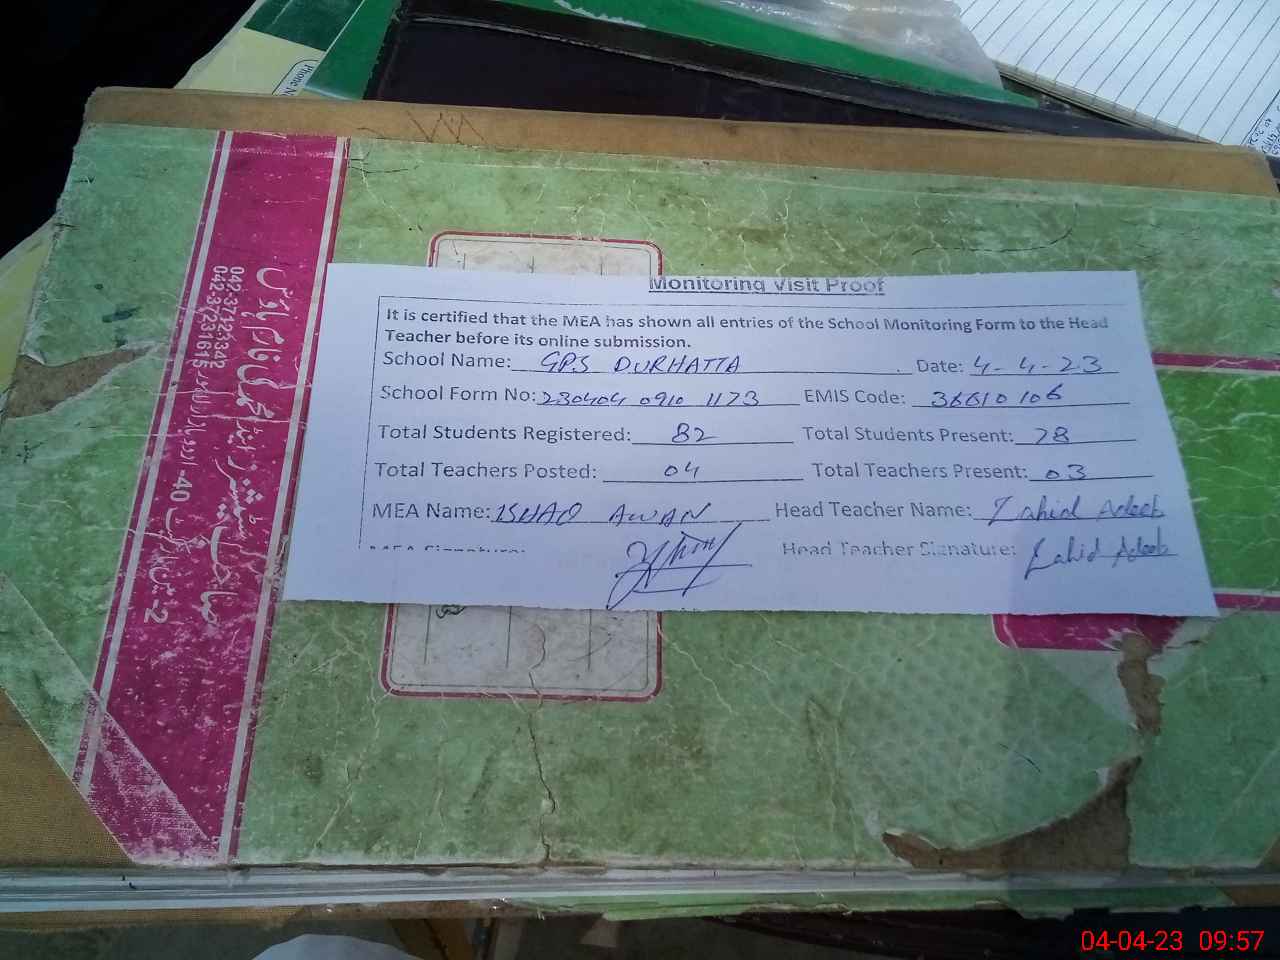 Phone N
Monitoring Visit Proof
It is certified that the MEA has shown all entries of the School Monitoring Form to the Head
Teacher before its online submission.
School Name: GPS DURHATTA Date: 4-4-23
School Form No: 230404 0910 1173 EMIS Code: 36610106
Total Students Registered: 82 Total Students Present: 78
Total Teachers Posted: 04 Total Teachers Present: 03
MEA Name: ISHAQ AWAN Head Teacher Name: Zahid Adeeb
MEA Signature: Head Teacher Signature: Zahid Adeeb
042-37123342
042-37231615
2-
40-اردو بازار لاہور
04-04-23 09:57